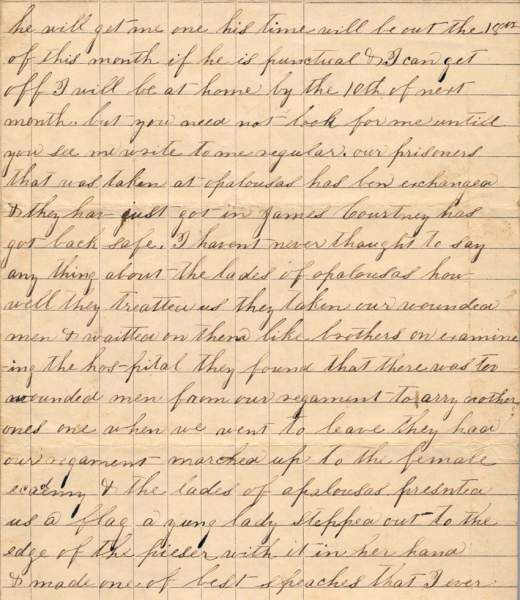 he will get me one his time will be out the 18th
of this month if he is punctual & I can get
off I will be at home by the 10th of next
month. but you need not look for me untill
you see me write to me regular. our prisoners
that was taken at opalousas has ben exchanged
& they hav just got in James Courtney has
got back safe. I havent never thought to say
any thing about the lades of opalousas how
well they treatted us they taken our wounded
men & waitted on them like brothers on examine
-ing the hos-pital they found that there was too
wounded men from our regament to arry another
ones one when we went to leave they had
our regament marched up to the female
ecadmy & the lades of opalousas presnted
us a flag a yung lady stepped out to the
edge of the pieser with it in her hand
& made one of best speaches that I ever